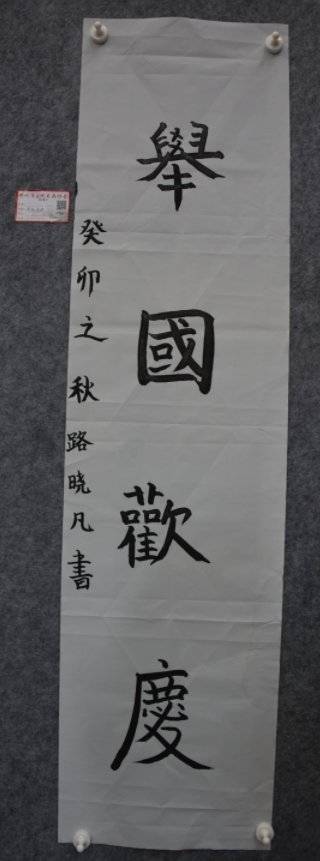 舉國歡慶
癸卯之秋路晓凡書